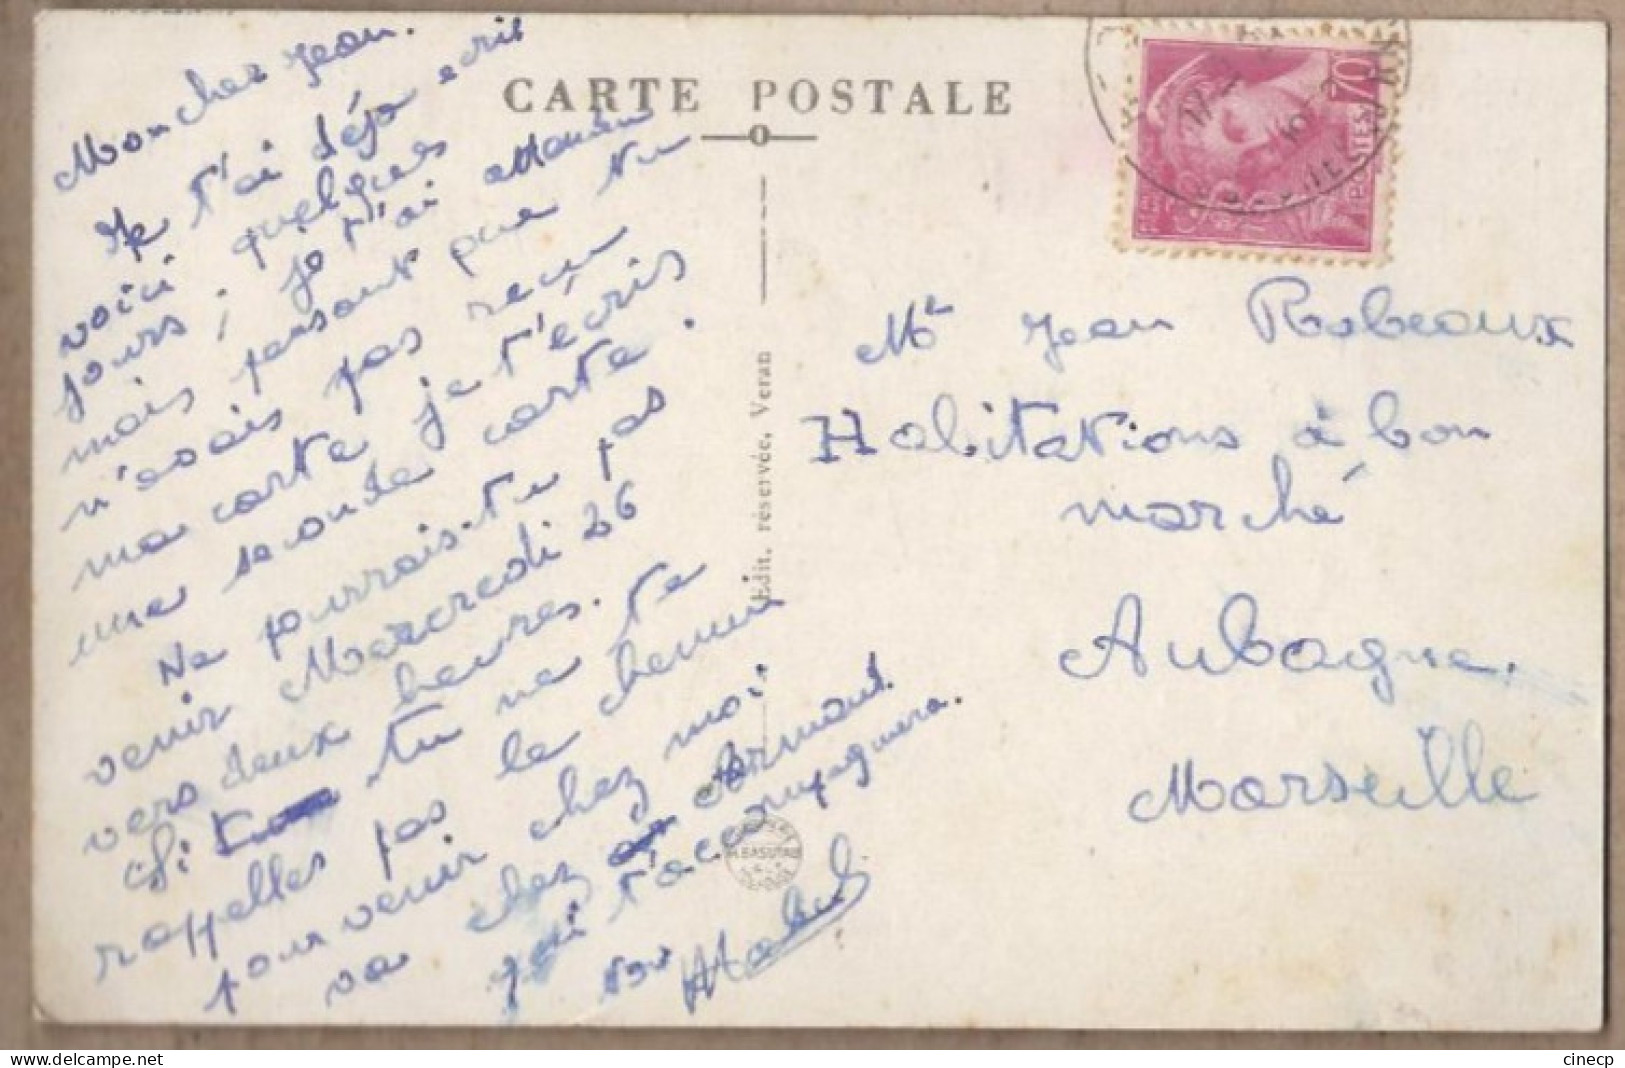 CARTE POSTALE
Mon cher Jean.
Je t'ai déja ecrit
voici quelques
jours ; je t'ai
mais pensant que tu
n'avais pas reçu
ma carte je t'écris
une seconde carte.
Ne pourrais-tu pas
venir Mercredi 26
vers deux heures.
Si tu ne te
rappelles pas le chemin
pour venir chez moi
va chez Armand.
qui t'accompagnera.
Edit. réservée, Veran
70
POSTES
Mr Jean Robeaux
Habitations à bon
marché
Aubagne.
Marseille
cinecp